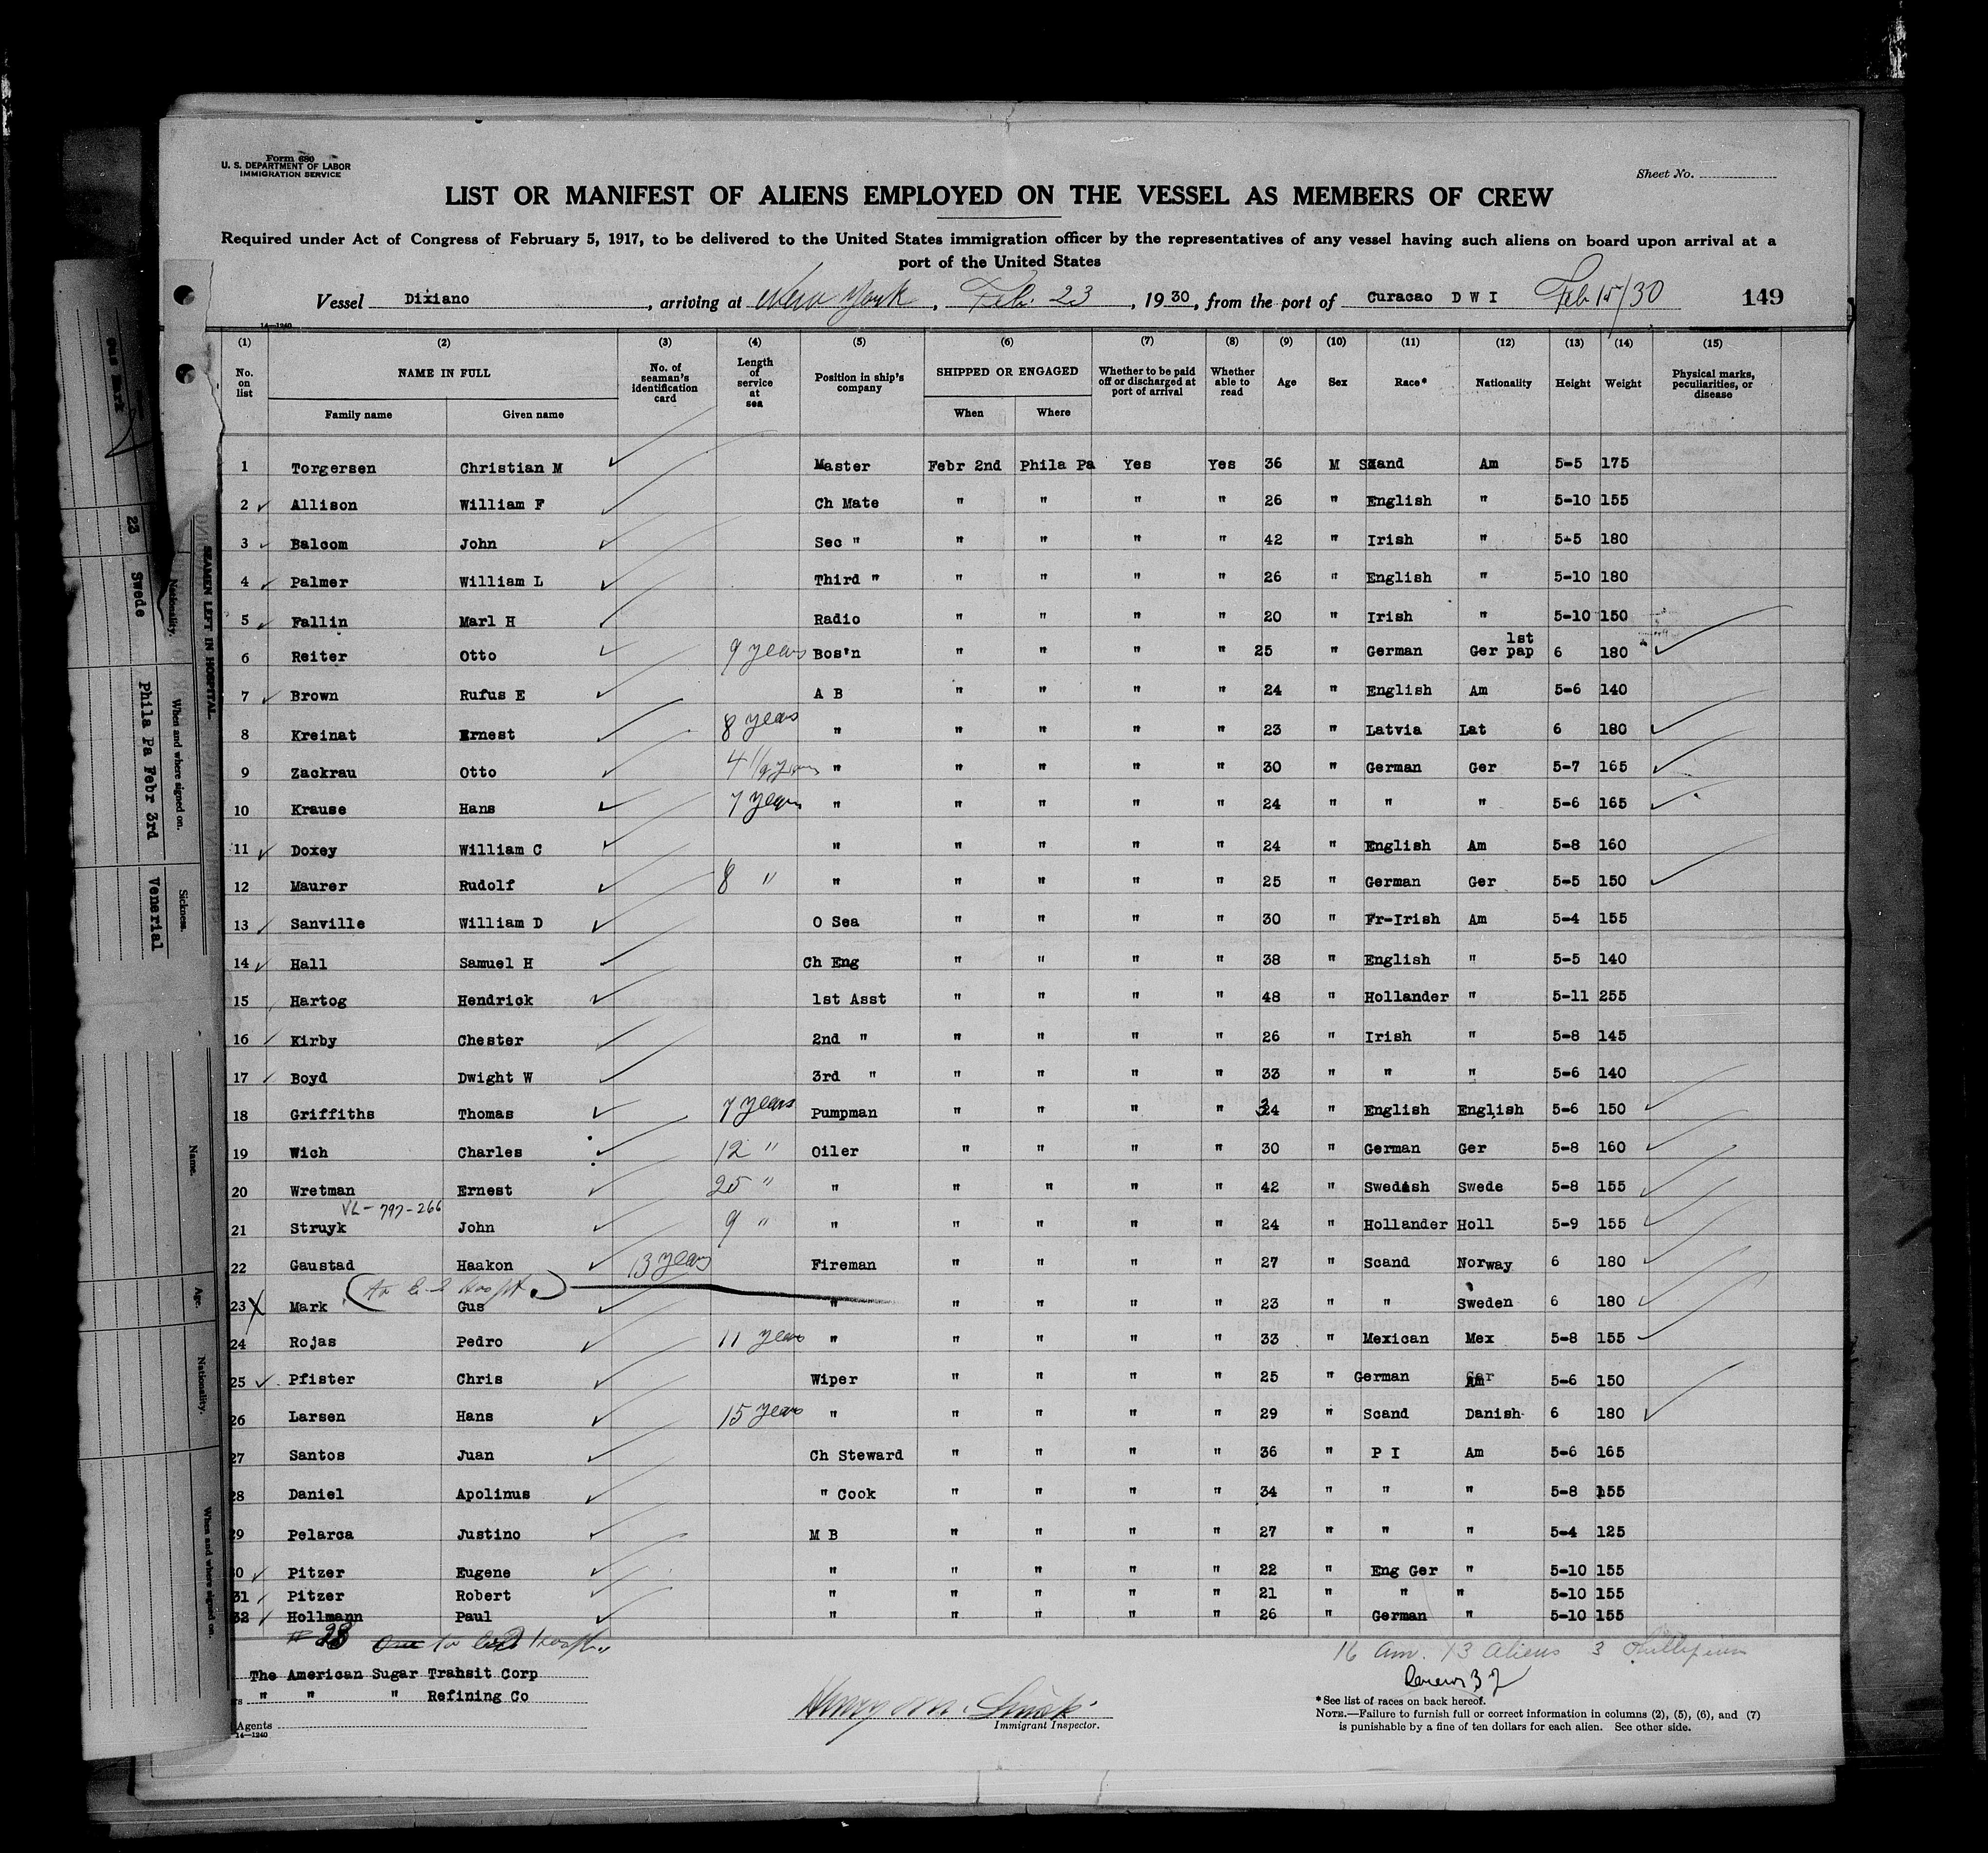 Form 680
U. S. DEPARTMENT OF LABOR
IMMIGRATION SERVICE
Sheet No.
LIST OR MANIFEST OF ALIENS EMPLOYED ON THE VESSEL AS MEMBERS OF CREW
Required under Act of Congress of February 5, 1917, to be delivered to the United States immigration officer by the representatives of any vessel having such aliens on board upon arrival at a
port of the United States
Vessel Dixiano, arriving at New York, Feb. 23, 1930, from the port of Curacao D W I Feb 15/30 149
14—1240
(1) (2) (3) (4) (5) (6) (7) (8) (9) (10) (11) (12) (13) (14) (15)
No. on list NAME IN FULL Family name Given name No. of seaman's identification card Length of service at sea Position in ship's company SHIPPED OR ENGAGED When Where Whether to be paid off or discharged at port of arrival Whether able to read Age Sex Race* Nationality Height Weight Physical marks, peculiarities, or disease
1 Torgersen Christian M Master Febr 2nd Phila Pa Yes Yes 36 M Scand Am 5-5 175
2 Allison William F Ch Mate " " " " 26 " English " 5-10 155
3 Balcom John Sec " " " " " 42 " Irish " 5-5 180
4 Palmer William L Third " " " " " 26 " English " 5-10 180
5 Fallin Marl H Radio " " " " 20 " Irish " 5-10 150
6 Reiter Otto 9 years Bos'n " " " " 25 " German Ger 1st pap 6 180
7 Brown Rufus E A B " " " " 24 " English Am 5-6 140
8 Kreinat Ernest 8 years " " " " " 23 " Latvia Lat 6 180
9 Zackrau Otto 4 1/2 years " " " " " 30 " German Ger 5-7 165
10 Krause Hans 7 years " " " " " 24 " " " 5-6 165
11 Doxey William C " " " " " 24 " English Am 5-8 160
12 Maurer Rudolf 8 " " " " " " 25 " German Ger 5-5 150
13 Sanville William D O Sea " " " " 30 " Fr-Irish Am 5-4 155
14 Hall Samuel H Ch Eng " " " " 38 " English " 5-5 140
15 Hartog Hendrick 1st Asst " " " " 48 " Hollander " 5-11 255
16 Kirby Chester 2nd " " " " " 26 " Irish " 5-8 145
17 Boyd Dwight W 3rd " " " " " 33 " " " 5-6 140
18 Griffiths Thomas 7 years Pumpman " " " " 34 " English English 5-6 150
19 Wich Charles 12 " Oiler " " " " 30 " German Ger 5-8 160
20 Wretman Ernest 25 " " " " " " 42 " Swedish Swede 5-8 155
VL-797-266
21 Struyk John 9 " " " " " " 24 " Hollander Holl 5-9 155
22 Gaustad Haakon 13 years Fireman " " " " 27 " Scand Norway 6 180
23 X Mark Gus " " " " " 23 " " Sweden 6 180
24 Rojas Pedro 11 years " " " " " 33 " Mexican Mex 5-8 155
25 Pfister Chris Wiper " " " " 25 " German Am 5-6 150
26 Larsen Hans 15 years " " " " " 29 " Scand Danish 6 180
27 Santos Juan Ch Steward " " " " 36 " P I Am 5-6 165
28 Daniel Apolinus " Cook " " " " 34 " " " 5-8 155
29 Pelarca Justino M B " " " " 27 " " " 5-4 125
30 Pitzer Eugene " " " " " 22 " Eng Ger " 5-10 155
31 Pitzer Robert " " " " " 21 " " " 5-10 155
32 Hollmann Paul " " " " " 26 " German " 5-10 155
16 Am. 13 Aliens 3
The American Sugar Transit Corp
" " " Refining Co
Agents
14—1240
Immigrant Inspector.
32
*See list of races on back hereof.
NOTE.—Failure to furnish full or correct information in columns (2), (5), (6), and (7)
is punishable by a fine of ten dollars for each alien. See other side.
SEAMEN LEFT IN HOSPITAL
Nationality. When and where signed on. Sickness.
Gus Mark 23 Swede Phila Pa Febr 3rd Venerial
Name. Age. Nationality. When and where signed on.